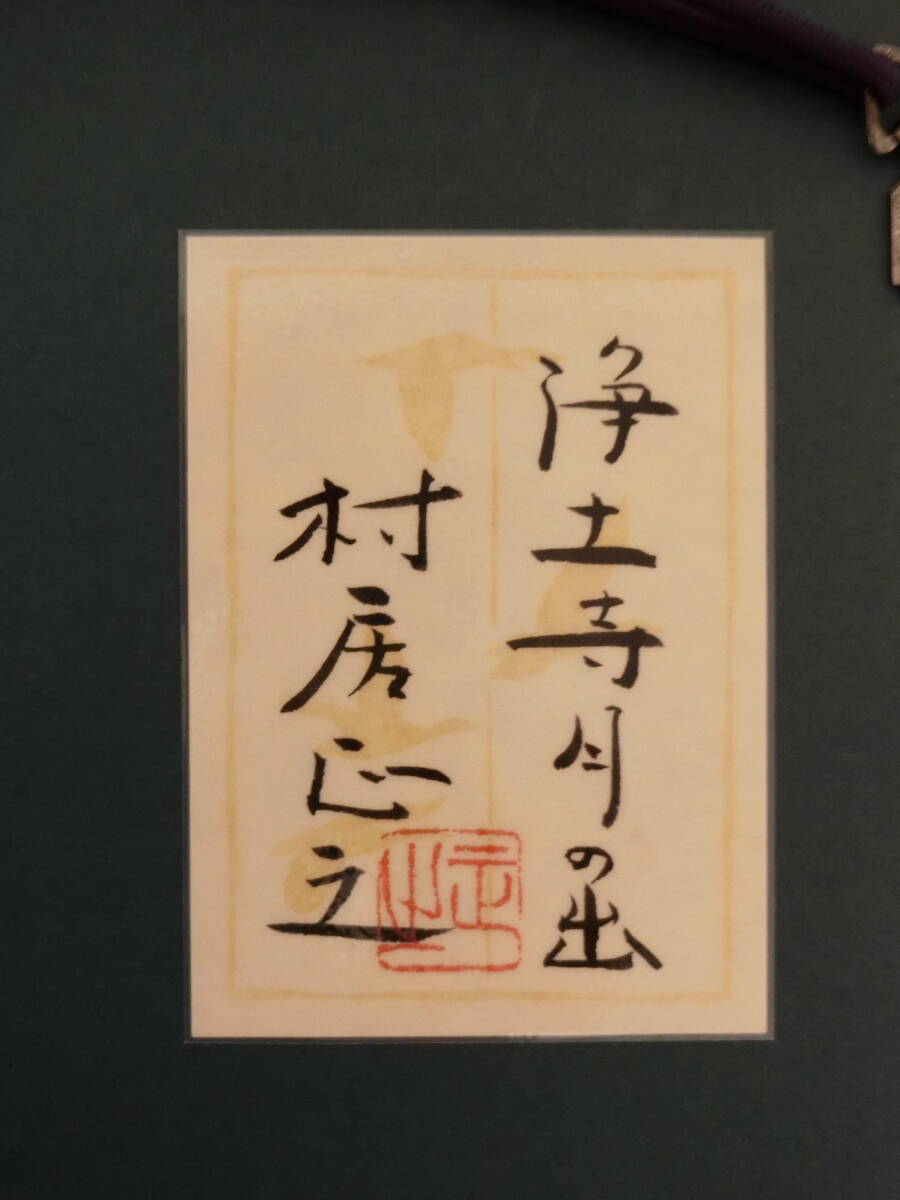 浄土寺月の出
村居正之
正之